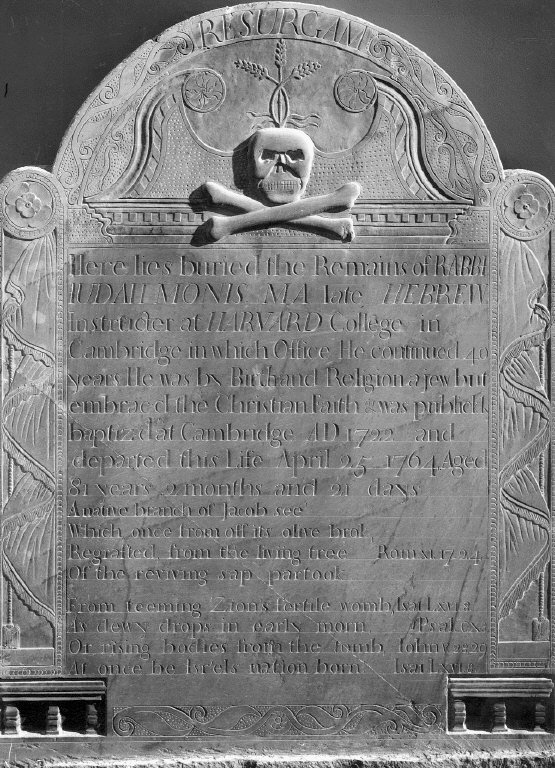 RESURGAM
Here lies buried the Remains of RABBI
IUDAH MONIS MA late HEBREW
Instructer at HARVARD College in
Cambridge in which Office He continued 40
years He was by Birth and Religion a jew but
embraced the Christian Faith & was publickly
baptized at Cambridge AD 1722 and
departed this Life April 25 1764 Aged
81 years 2 months and 21 days
A native branch of Jacob see
Which once from off its olive brok
Regrafted from the living tree Rom xi 17 24
Of the reviving sap partook
From teeming Zions fertile womb Isai Lxvi 8
As dewy drops in early morn Ps cx 3
Or rising bodies from the tomb John
At once be Isr'els nation born Isai Lxvi 8